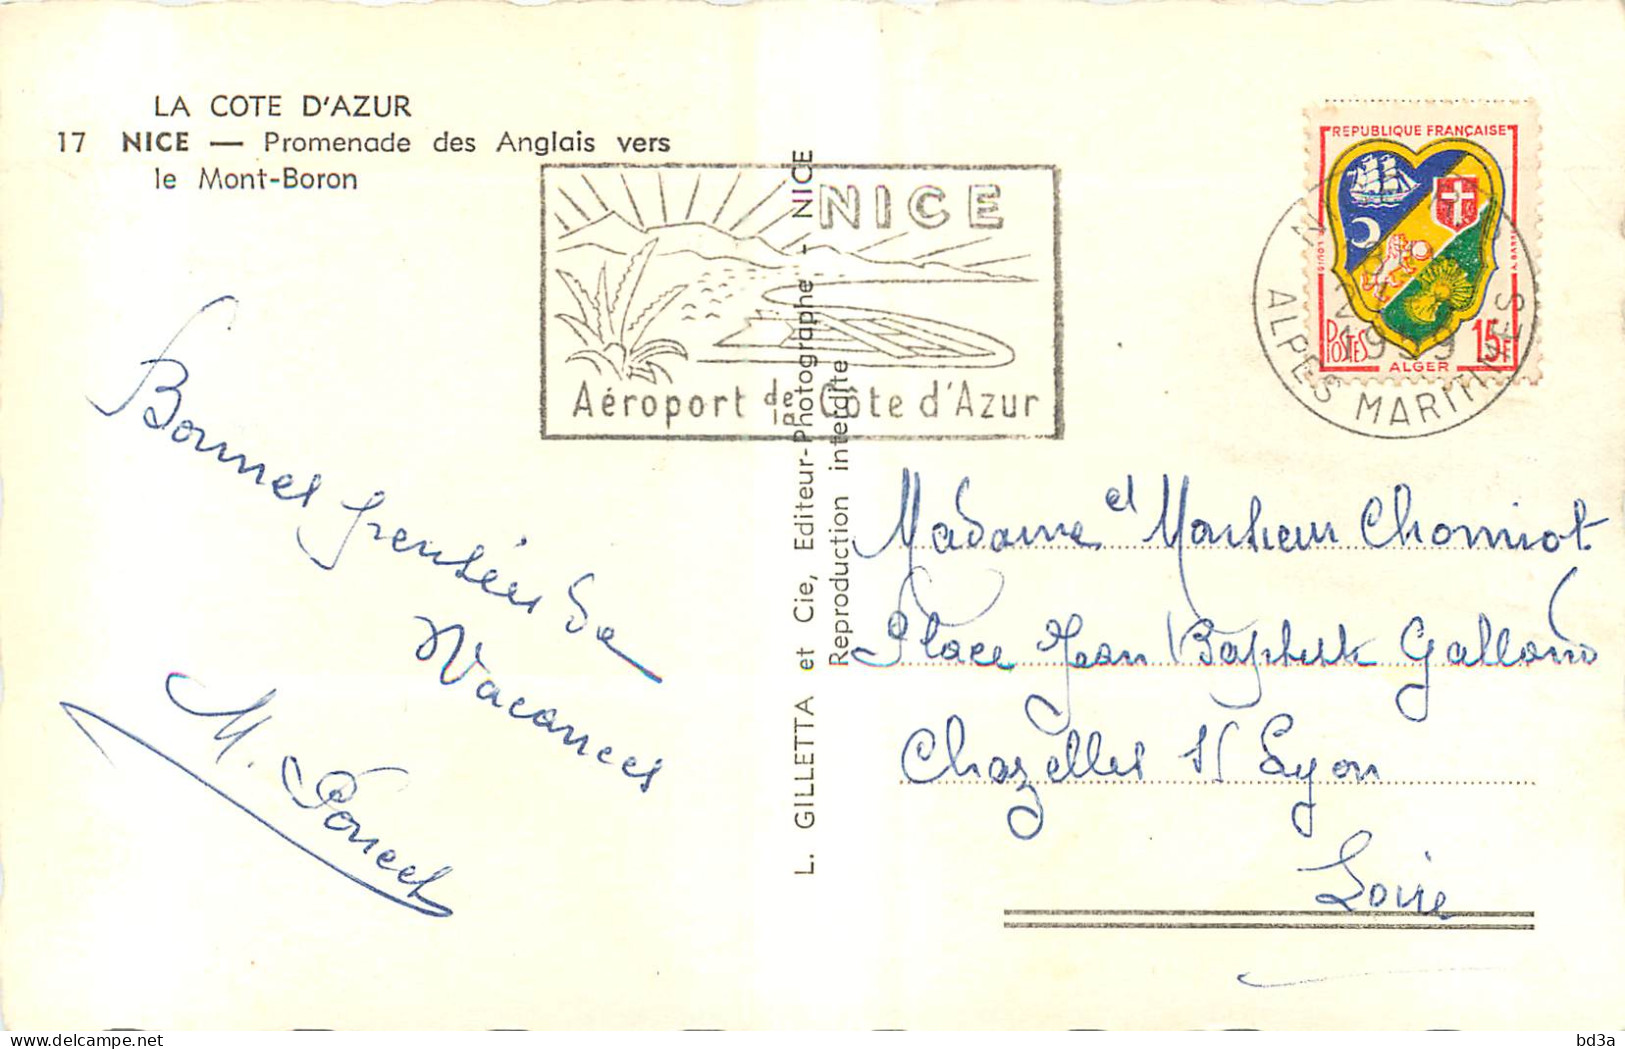 LA COTE D'AZUR
17 NICE — Promenade des Anglais vers
le Mont-Boron
NICE
Aéroport de la Côte d'Azur
REPUBLIQUE FRANÇAISE
POSTES
15F
ALGER
1959
ALPES MARITIMES
L. GILLETTA et Cie, Editeur-Photographe - NICE
Reproduction interdite
Bonnes pensées de
Vacances
M. Poncet
Madame et Monsieur Chomiot
Place Jean Baptiste Galland
Chazelles S/ Lyon
Loire
bd3a